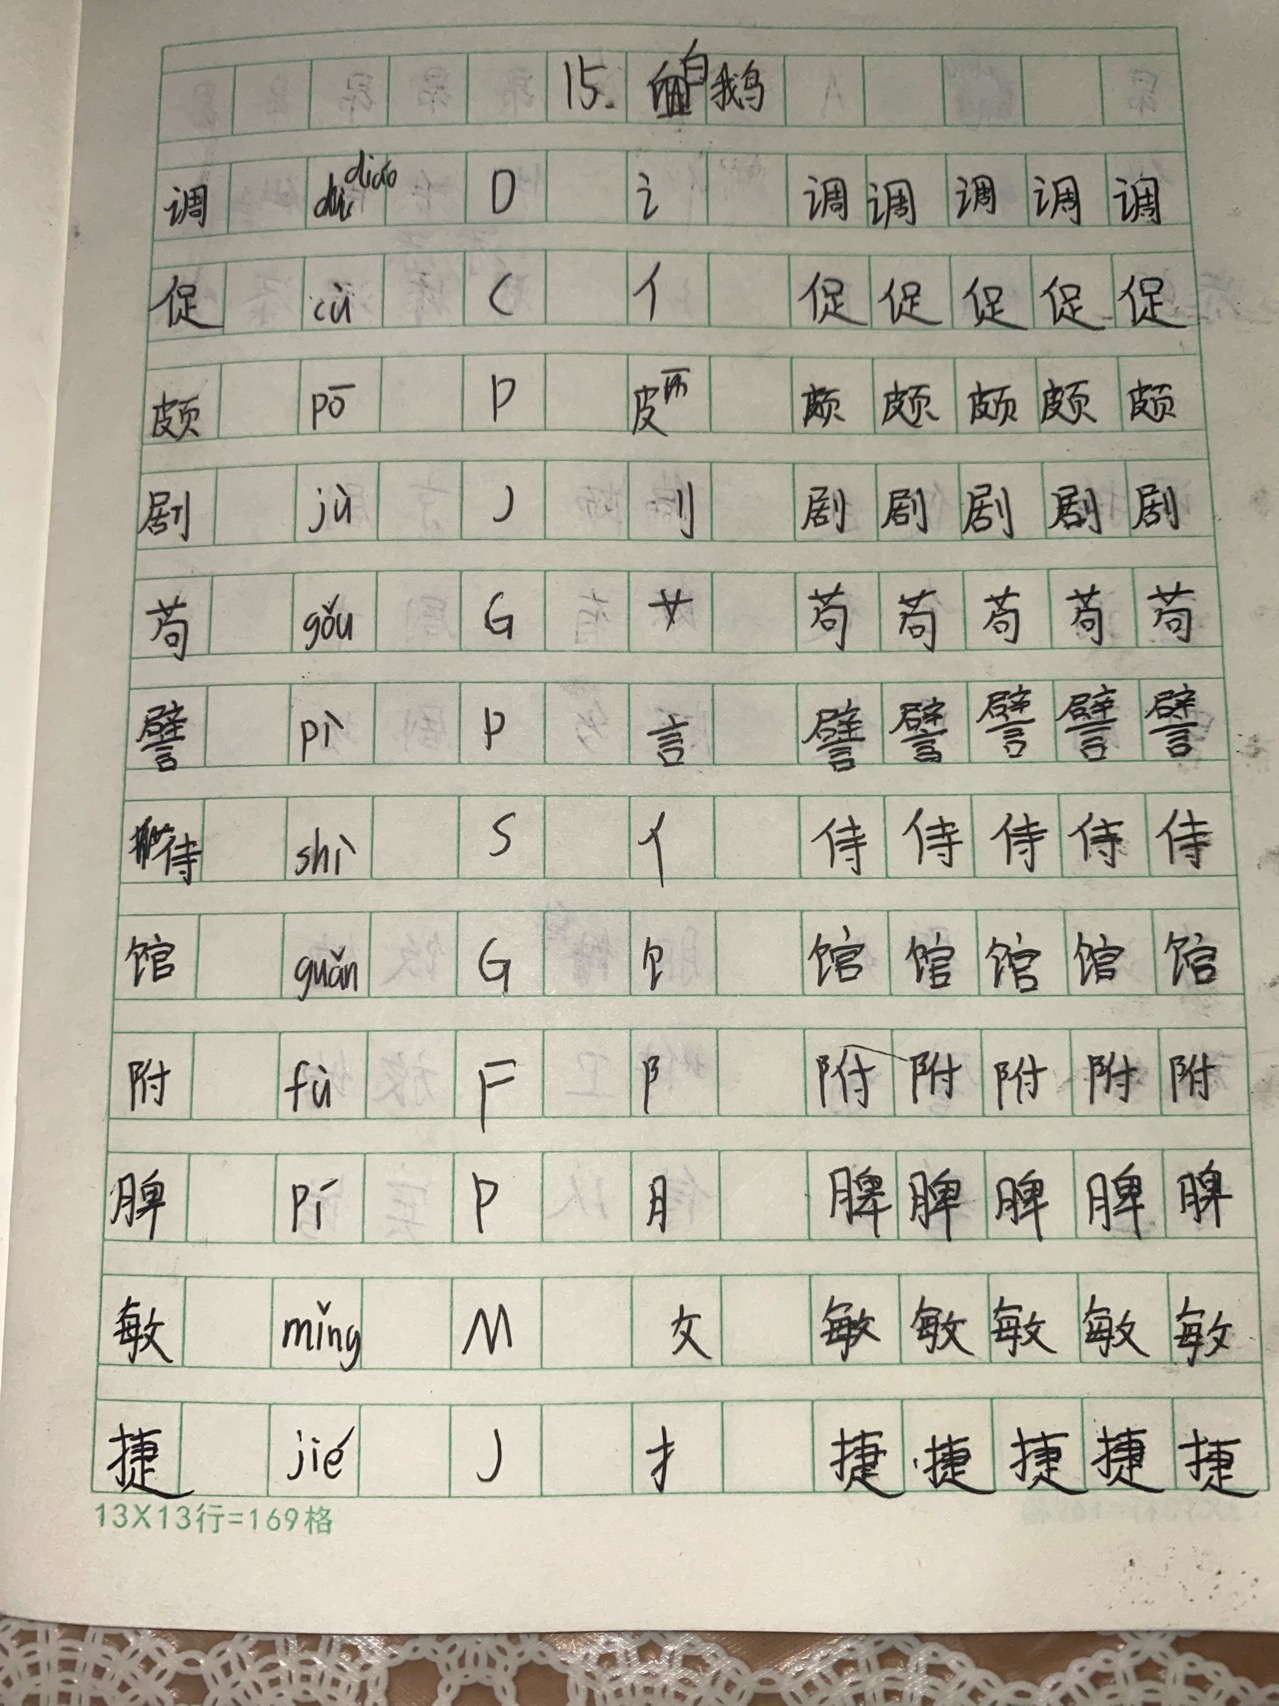 15. 白鹅
调 diào D 讠 调 调 调 调 调
促 cù C 亻 促 促 促 促 促
颇 pō P 皮 颇 颇 颇 颇 颇
剧 jù J 刂 剧 剧 剧 剧 剧
苟 gǒu G 艹 苟 苟 苟 苟 苟
譬 pì P 言 譬 譬 譬 譬 譬
侍 shì S 亻 侍 侍 侍 侍 侍
馆 guǎn G 饣 馆 馆 馆 馆 馆
附 fù F 阝 附 附 附 附 附
脾 pí P 月 脾 脾 脾 脾 脾
敏 mǐng M 攵 敏 敏 敏 敏 敏
捷 jié J 扌 捷 捷 捷 捷 捷
13X13行=169格